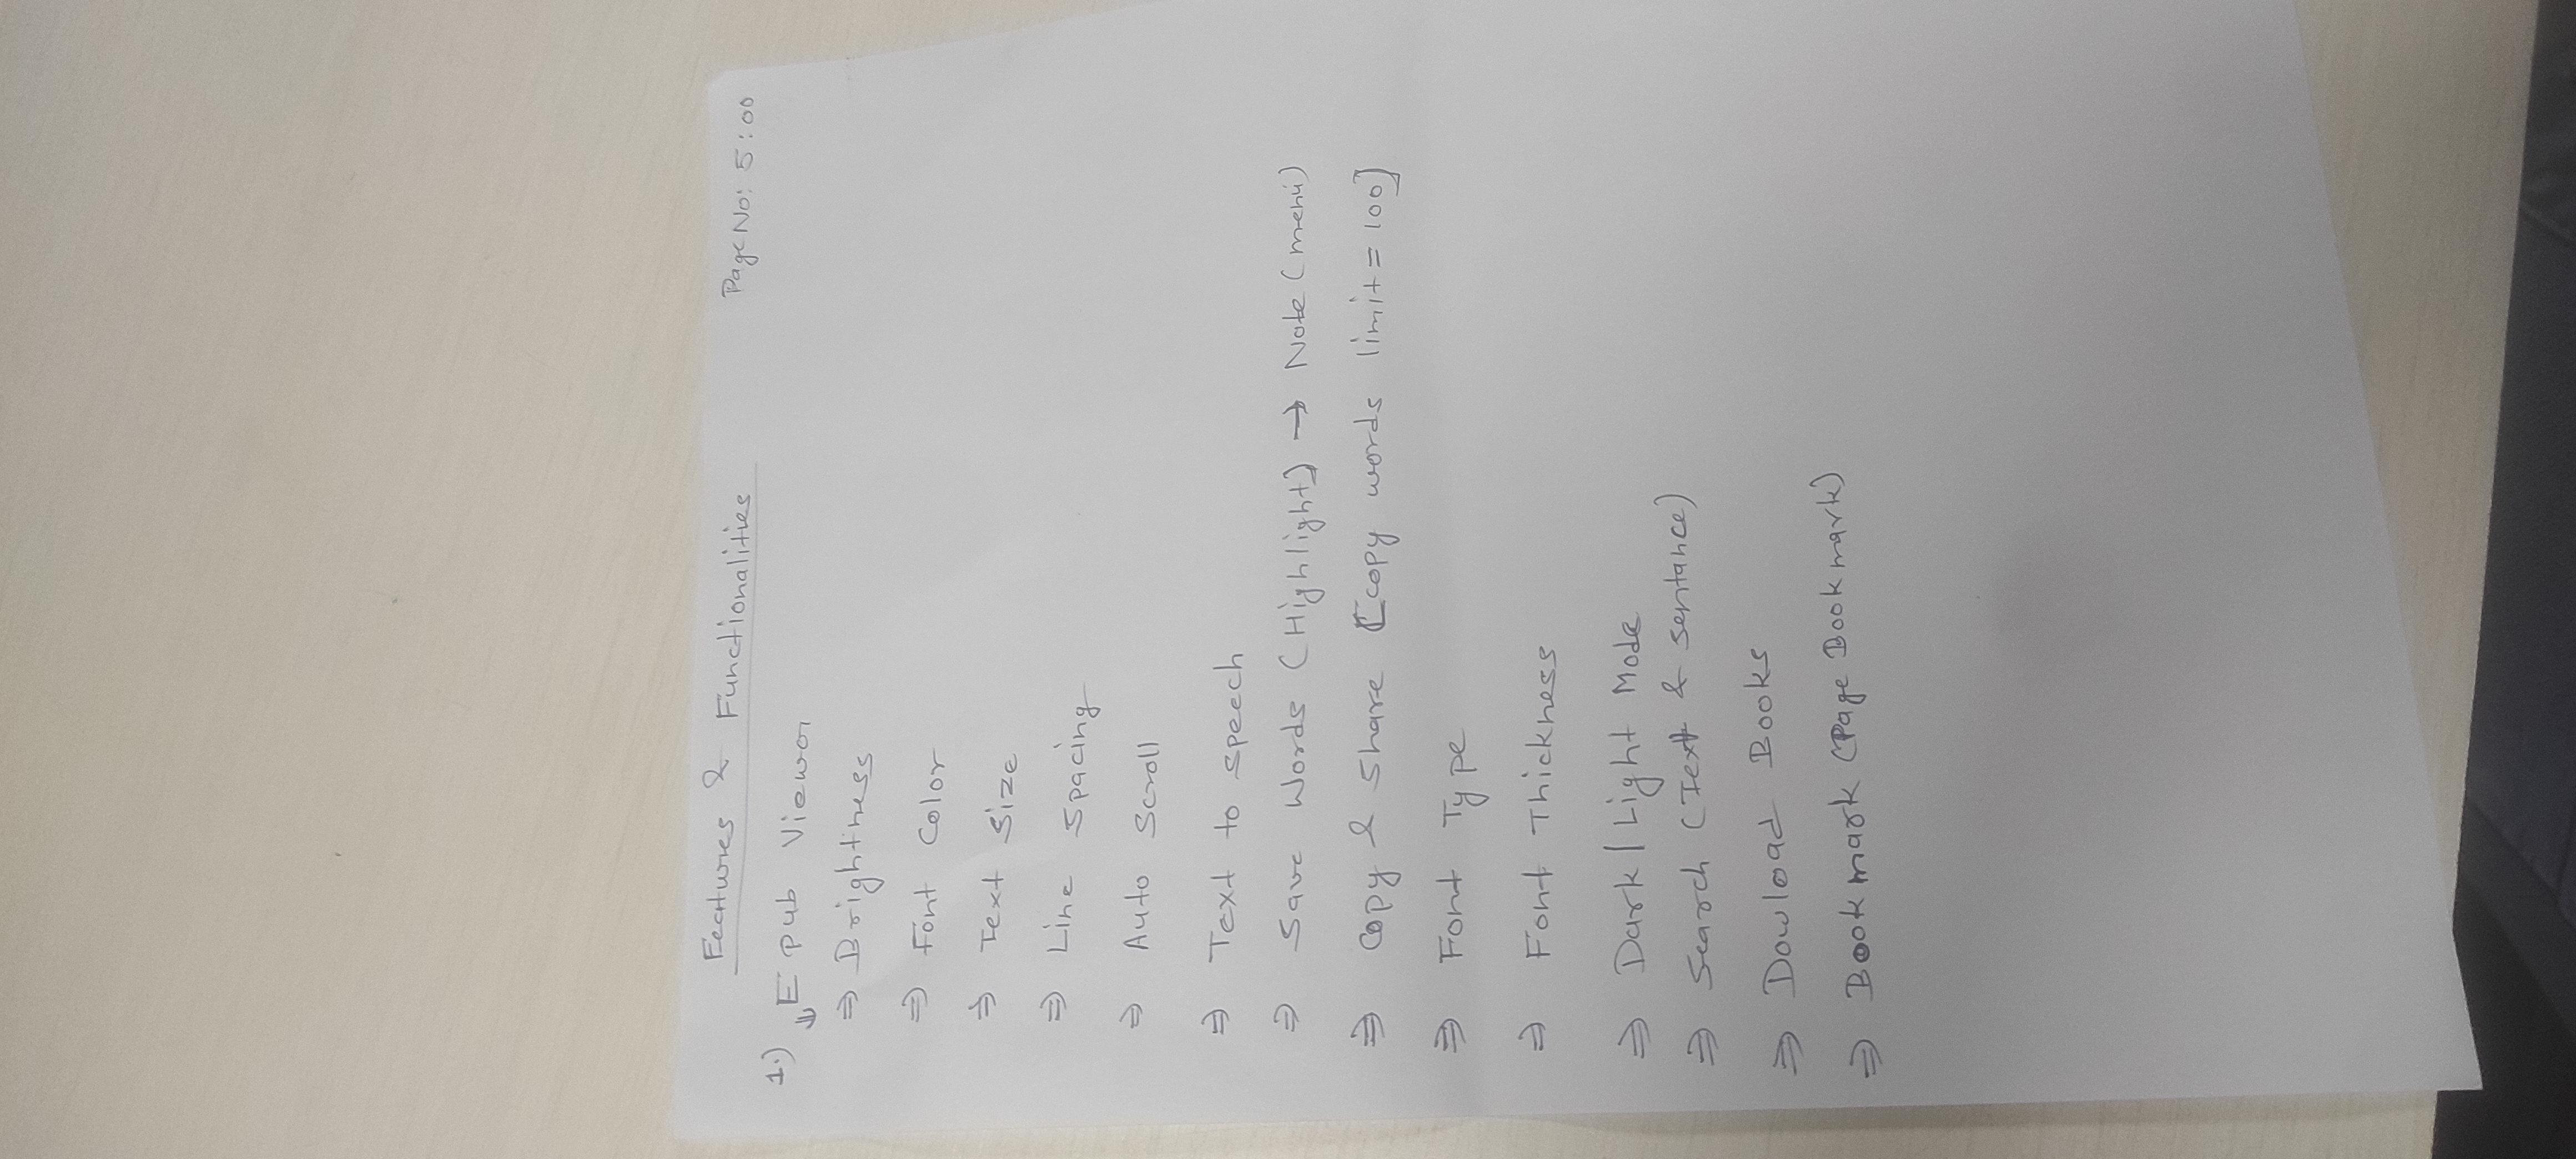 Features & Functionalities
Page No: 5:00
1.) E pub Viewer
⇒ Brightness
⇒ Font Color
⇒ Text Size
⇒ Line Spacing
⇒ Auto Scroll
⇒ Text to speech
⇒ Save Words (Highlight) → Note (menu)
⇒ Copy & Share [copy words limit = 100]
⇒ Font Type
⇒ Font Thickness
⇒ Dark / Light Mode
⇒ Search (Text & sentance)
⇒ Dowload Books
⇒ Bookmark (Page Bookmark)